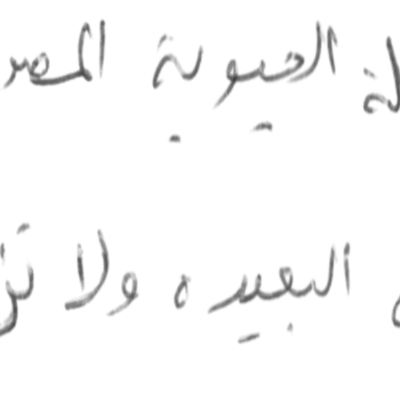 الحيوية المصر
البعيده ولا تز